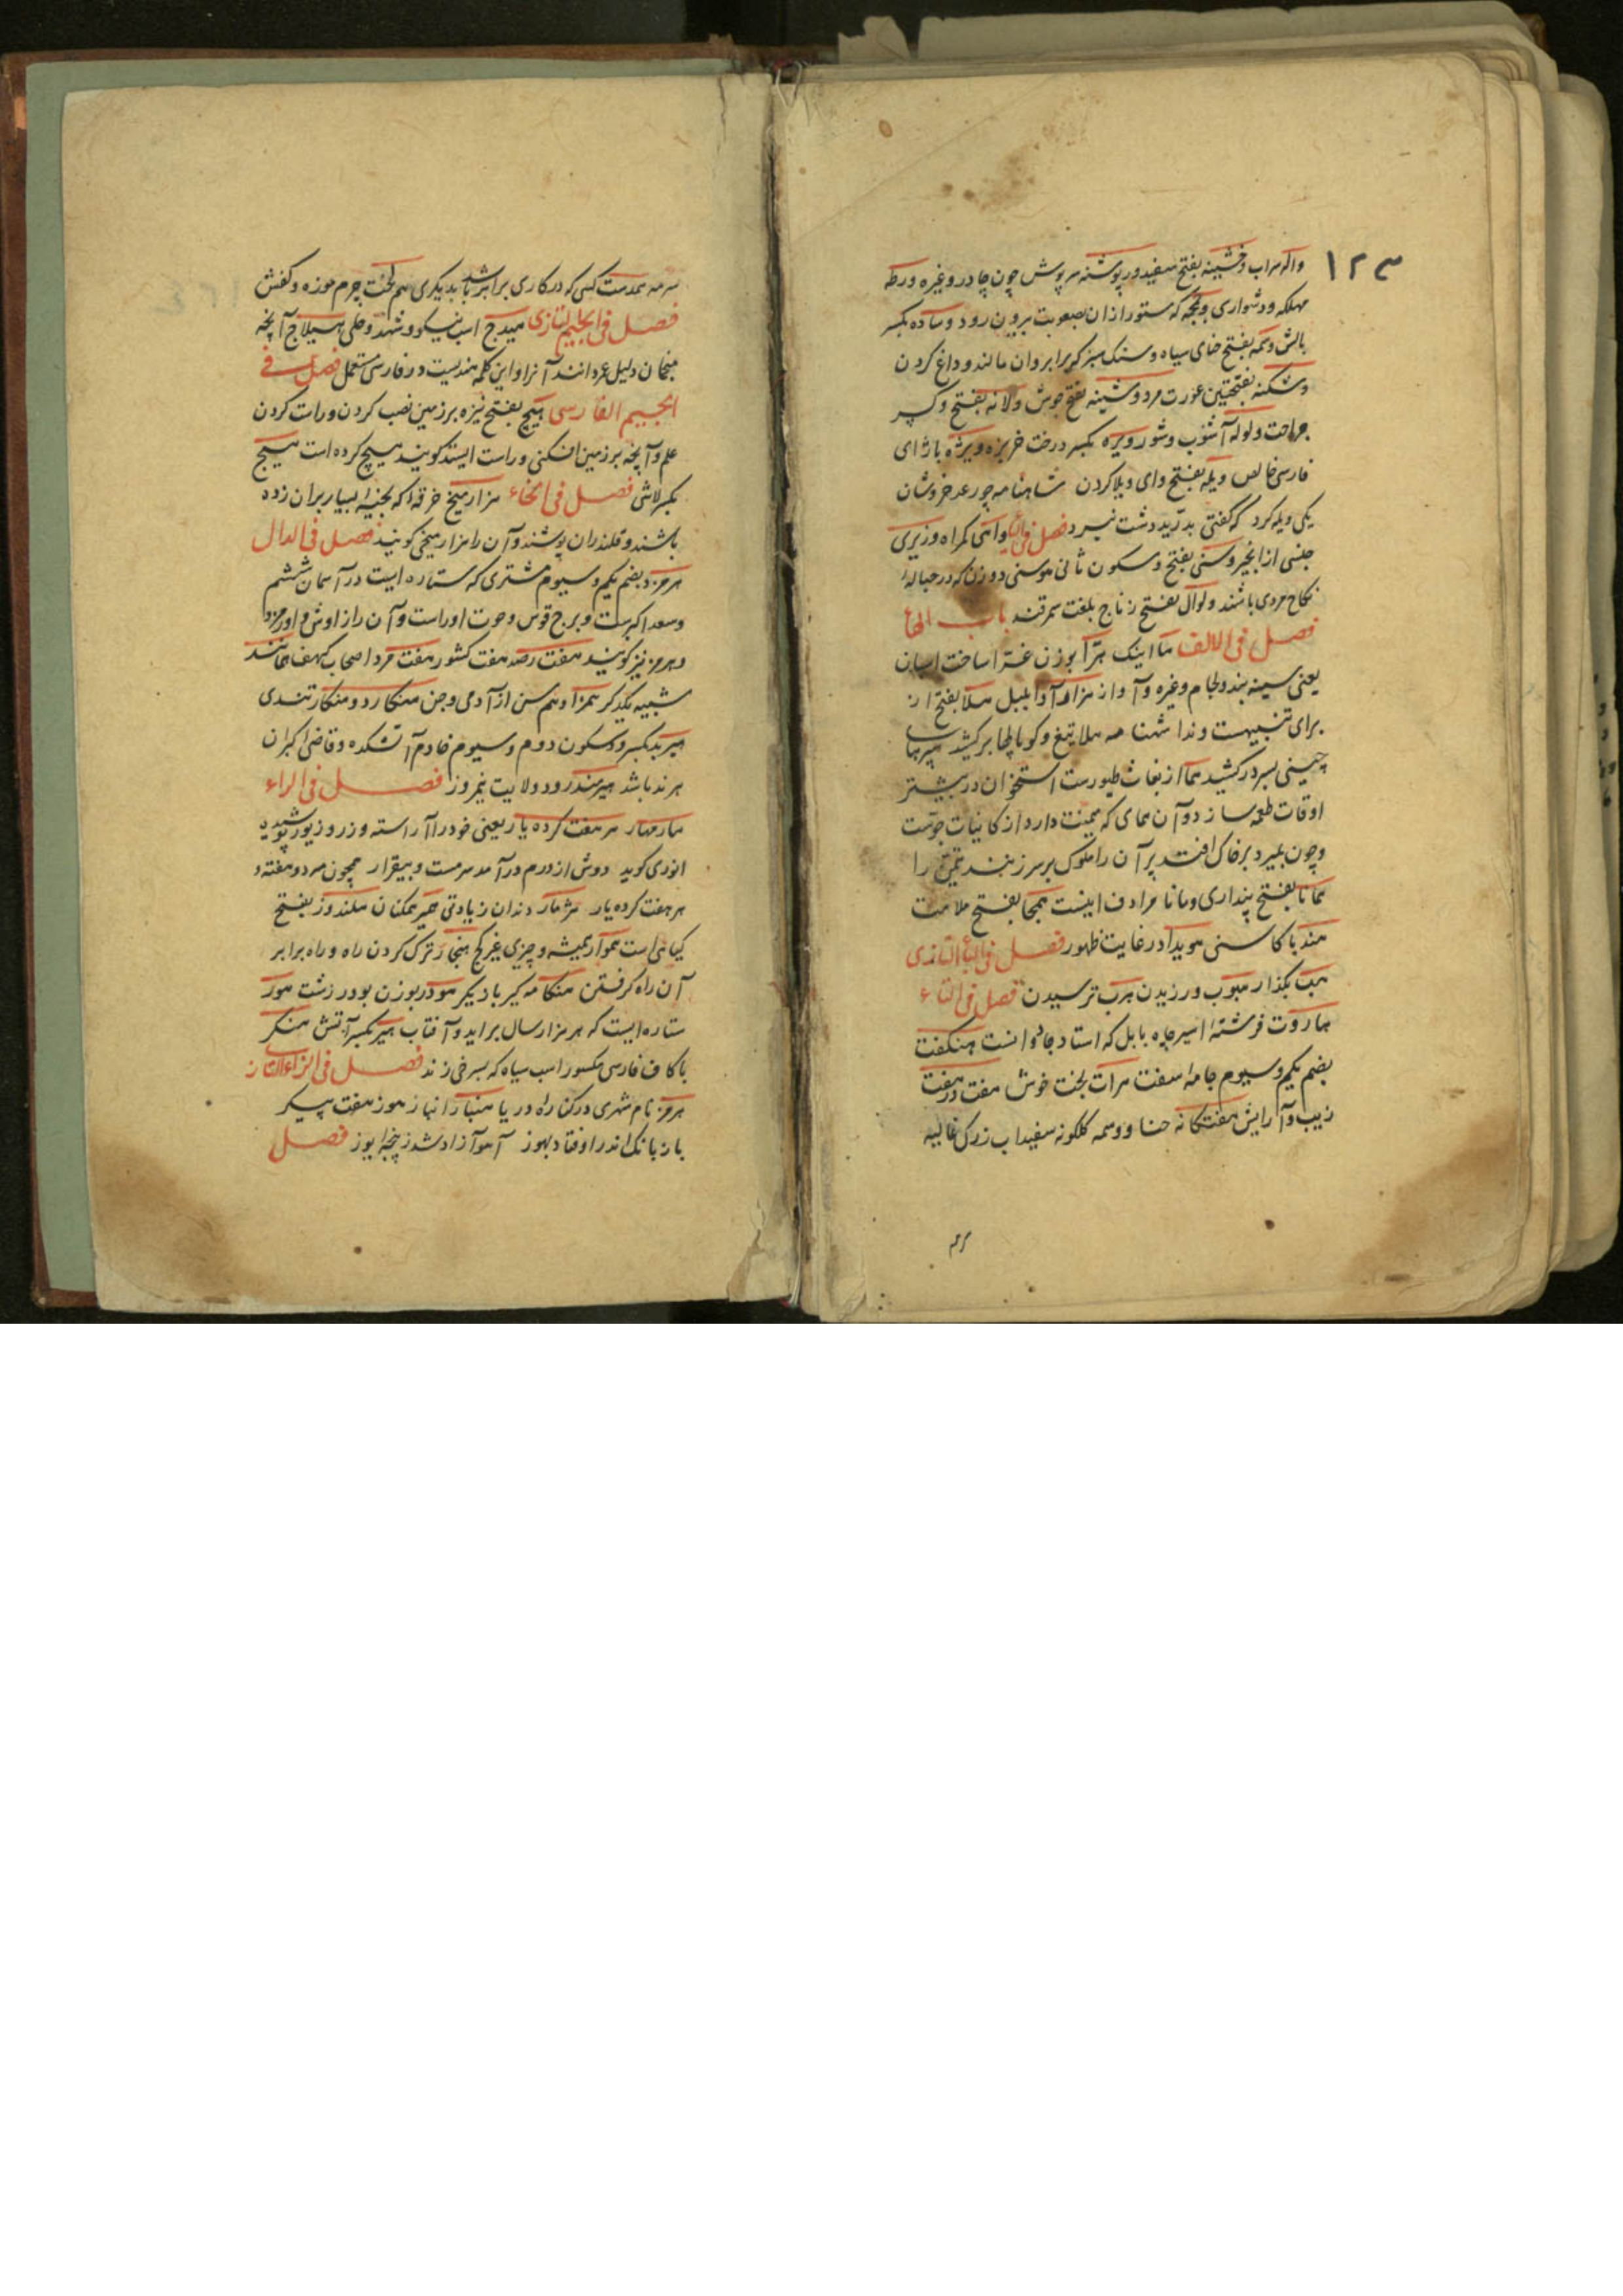 ۱۲۳
واله سراب وخشینه بفتح سفید ورپوشنه سرپوش چون چادر وغیره ورطه
مهلکه ودشواری که ستور ازان بصعوبت برون رود وساده بکسر
بالش وسمه بفتح حنای سیاه وسنک سبز که برابروان مالند وداغ کردن
وشکنه بفتحتین عورت مرد وشینه بفتح جوش ولانه بفتح وکسر
جراحت ولوله آشوب وشور ویره بکسر درخت خربزه ویژه باژای
فارسی خالص ویله بفتح وای ویلا کردن شاهنامه چو رعد خروشان
یکی ویله کرد که گفتی بدرید دشت نبرد فصل فی الیاء واهی کمراه وزیری
جنسی از انجیر وسنی بفتح وسکون ثانی موسنی دو زن که در حباله
نکاح مردی باشند ولوال بفتح زناج بلغت سمرقند باب الهاء
فصل فی الالف ها اینک هرا بوزن غرا ساخت اسپان
یعنی سینه بند ولجام وغیره وآواز هزارآوا بلبل هلا بفتح از
برای تنبیهست وندا شهنامه هلا تیغ وکوپالها برکشید سپرهای
چینی بسر درکشید هما از بغاث طیورست استخوان در بیشتر
اوقات طعمه سازد وآن همای که میمنت دارد از کاینات جوست
وچون بمیرد برخاک افتد پر آن را ملوک بر سر زنند تیمن را
همانا بفتح پنداری ومانا مرادف اینست همجا بفتح ملامت
هندبا کاسنی هویدا در غایت ظهور فصل فی الباء التازی
هب بگذار هبوب ورزیدن هرب ترسیدن فصل فی التاء
هاروت فرشته اسیر چاه بابل که استاد جادوانست هنکفت
بضم یکم وسیوم جامه سفت هرات لخت خوش هفت در هفت
زیب وآرایش هفتکانه حنا ووسمه کلکونه سفیداب زرک غالیه
سرمه
سرمه همدست کسی که در کاری برابر باشد بدیکری هم لخت چرم موزه وکفش
فصل فی الجیم التازی هیدج اسب نیکو وشهد وحلی هیلاج آنچه
منجمان دلیل عمر دانند آنرا واین کلمه هندیست در فارسی مستعمل فصل فے
الجیم الفارسی هیچ بفتح نیزه برزمین نصب کردن وراست کردن
علم وآنچه برزمین افکنی وراست ایستد کویند هیچ کرده است هیچ
بکسر لاش فصل فی الخاء هزارمیخ خرقه که بخیهٔ بسیار بران زده
باشند وقلندران پوشند وآن را هزارمیخی کویند فصل فی الدال
هرمزد بضم یکم وسیوم مشتری که ستاره ایست در آسمان ششم
وسعد اکبرست وبرج قوس وحوت اوراست وآن را زاوش واورمزد
وهرمز نیز کویند هفت رصد هفت کشور هفت مرد اصحاب کهف همانند
شبیه یکدکر همزاد هم سن از آدمی وجن هنکارد وهنکار تندی
هیربد بکسر وسکون دوم وسیوم خادم آتشکده وقاضی کبران
هرند باشد هیرمند رود ولایت نیمروز فصل فی الراء
هار مهار هر هفت کرده یار یعنی خود را آراسته وزر وزیور پوشیده
انوری کوید دوش از درم درآمد سرمست وبیقرار همچون مه دو هفته و
هر هفت کرده یار هژمار دندان زیادتی همکنان هلندوز بفتح
کیاهی است هموار همیشه وچیزی غیر کج هنجار ترک کردن راه وراه برابر
آن راه کرفتن هنکامه کیر بادیکر هودر بوزن بودر زشت هور
ستاره ایست که هر هزار سال برآید وآفتاب هیر بکسر آتش هنکر
باکاف فارسی مکسور اسب سیاه که بسرخی زند فصل فی الزاء التاز
هرمز نام شهری در کنار راه دریا هنباز انباز هوز هفت پیکر
باز بانک اندر اوفتاد بهوز آهو آزاد شد ز پنجهٔ یوز فصل